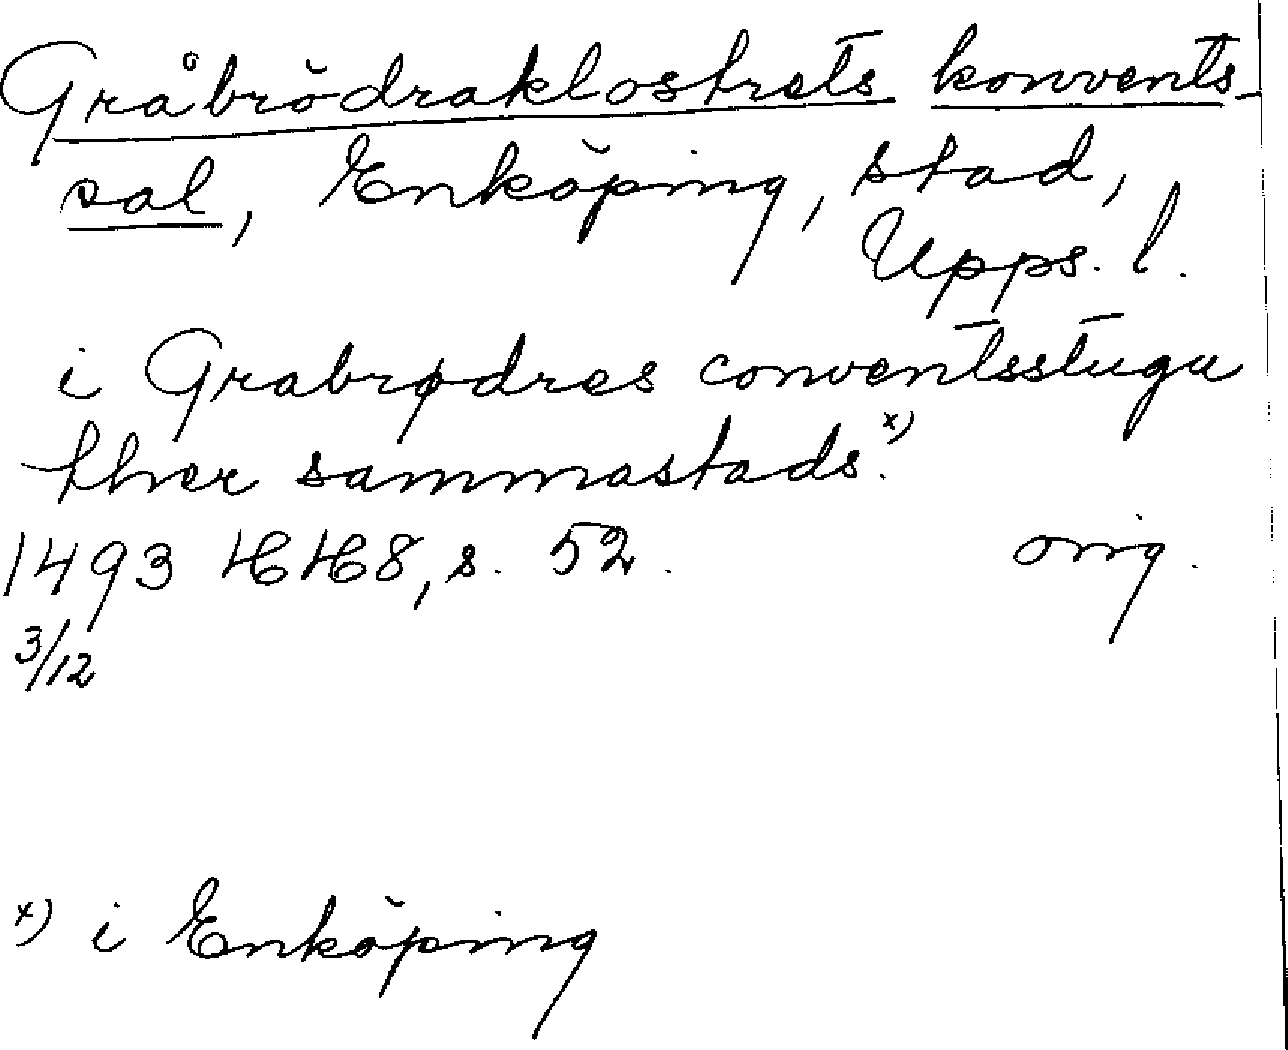 Gråbrödraklostrets konvents-
sal, Enköping, stad,
Upps. l.
i Grabrødres conventsstugu
ther sammastads.x)
1493 HH8, s. 52. orig.
3/12
x) i Enköping